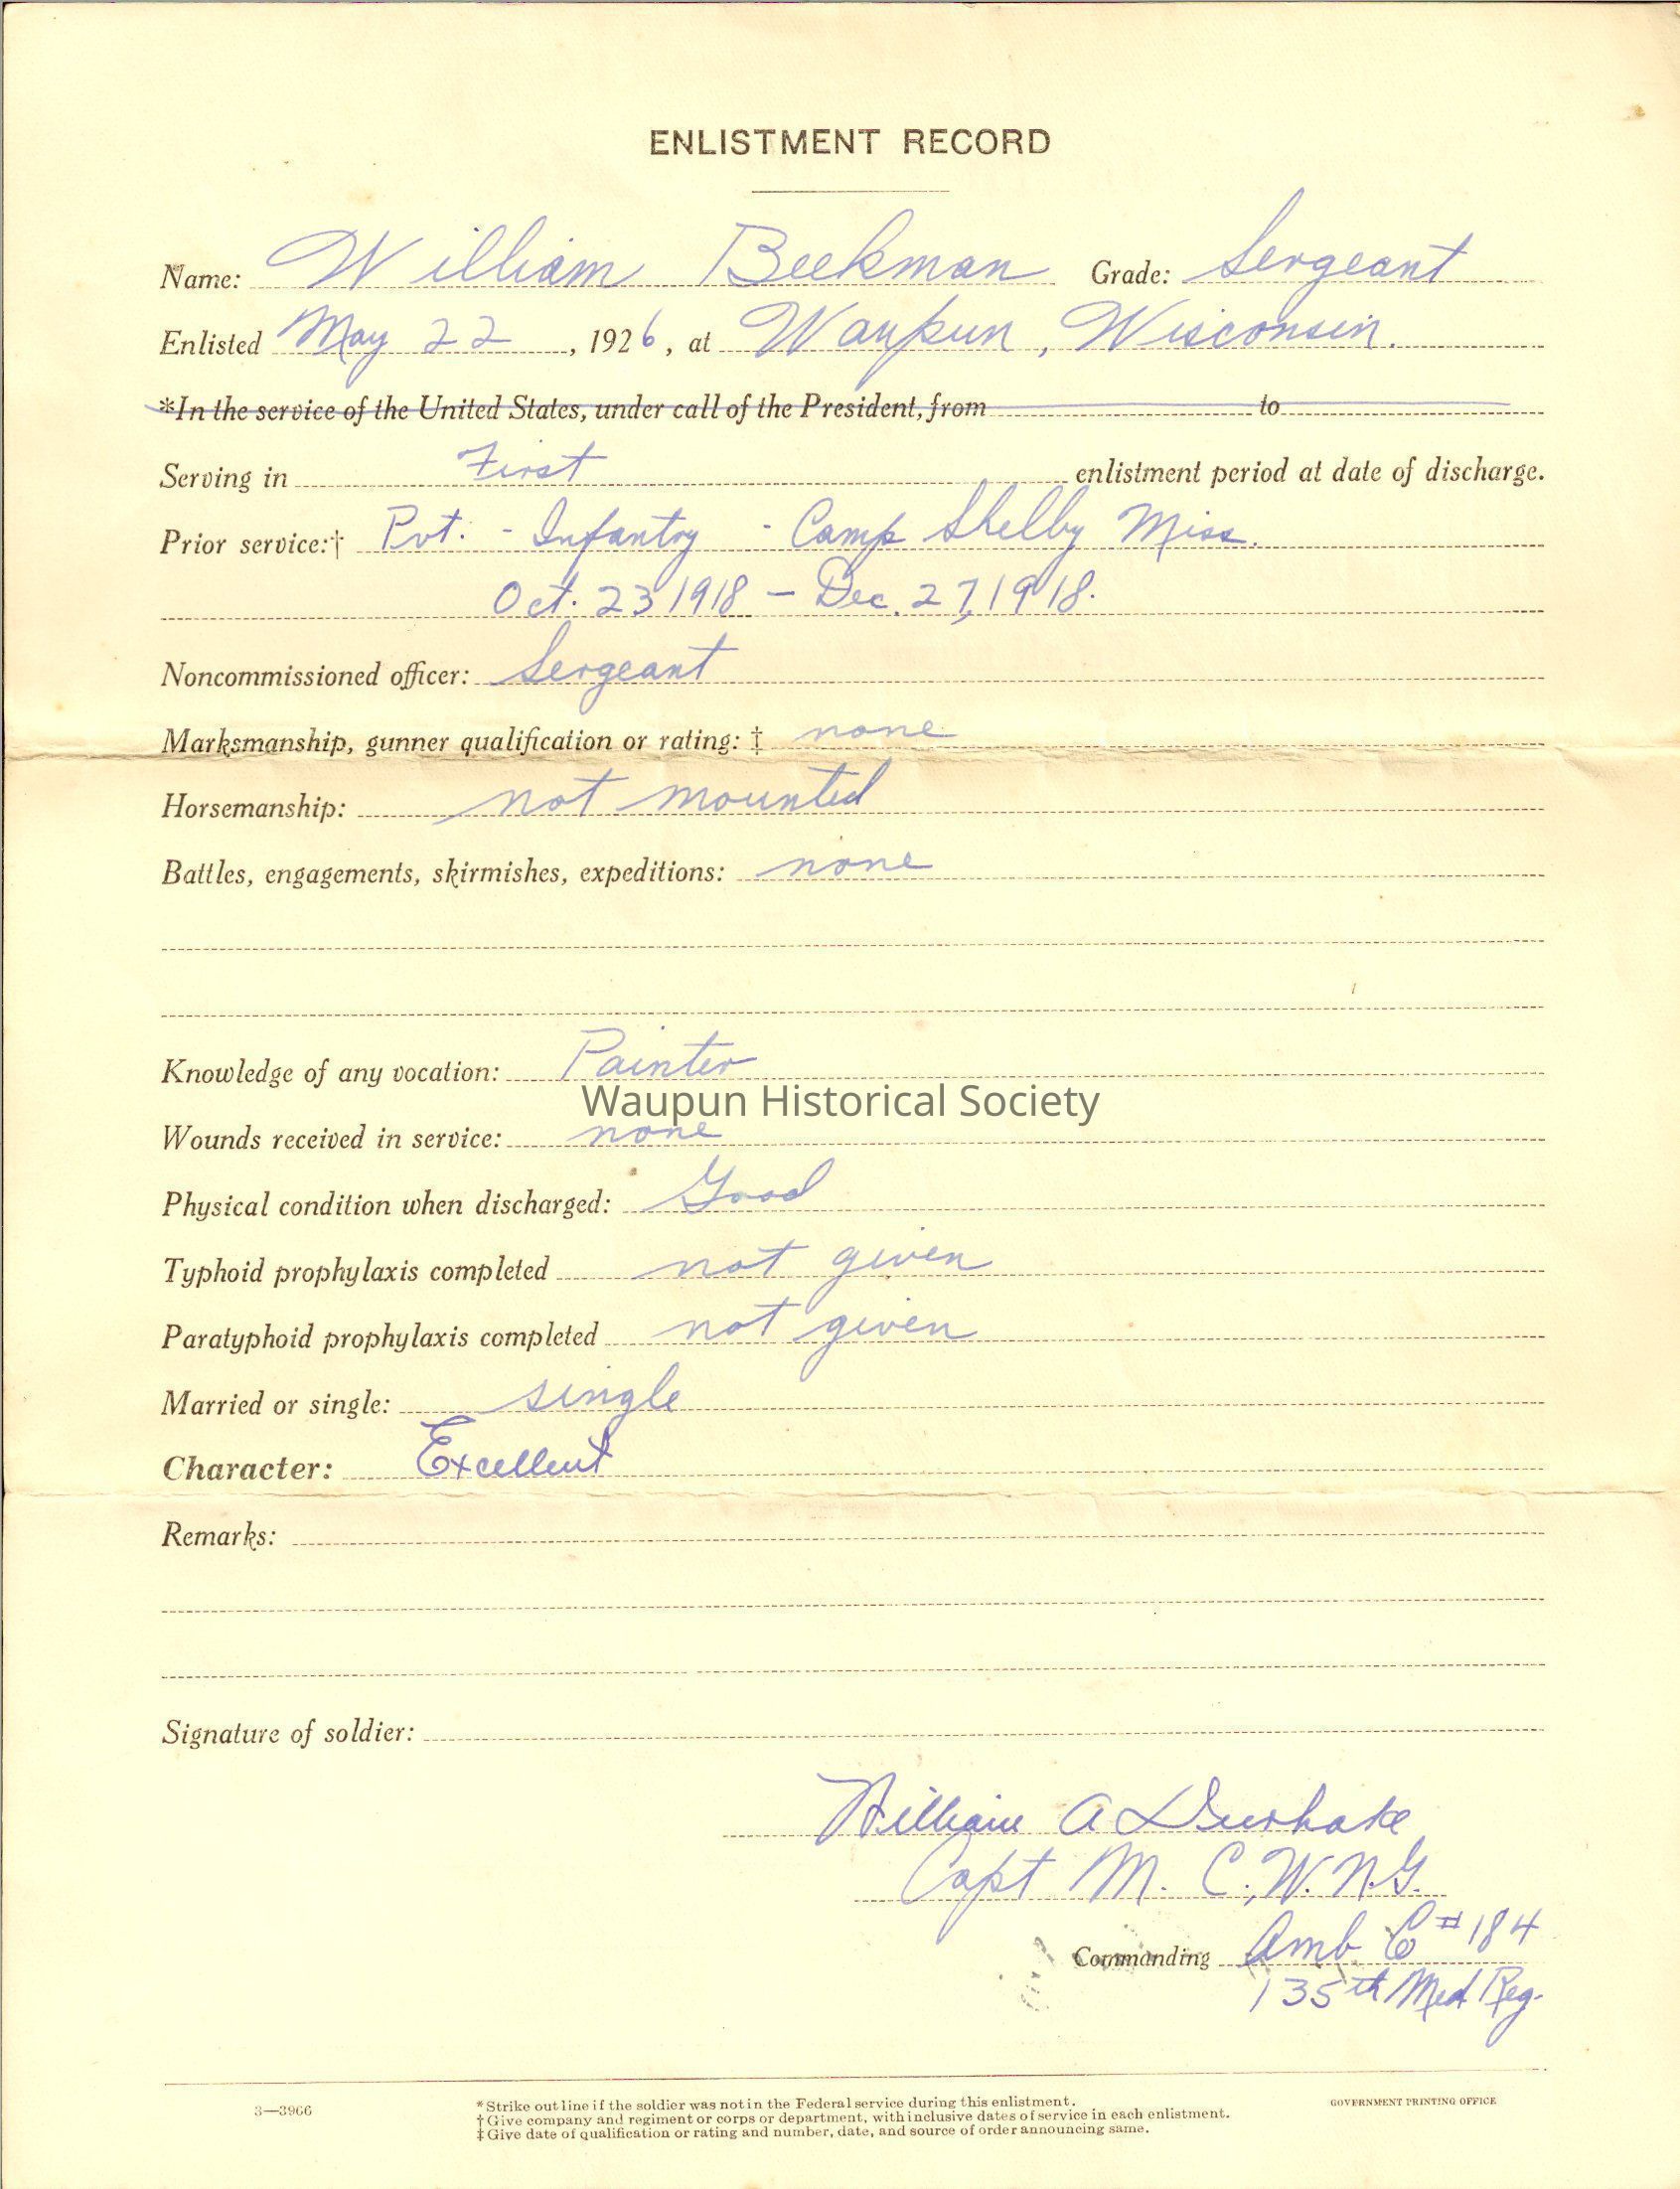 ENLISTMENT RECORD
Name: William Beekman Grade: Sergeant
Enlisted May 22, 1926, at Waupun, Wisconsin.
*In the service of the United States, under call of the President, from to
Serving in First enlistment period at date of discharge.
Prior service:† Pvt. - Infantry - Camp Shelby Miss.
Oct. 23 1918 – Dec. 27, 1918.
Noncommissioned officer: Sergeant
Marksmanship, gunner qualification or rating: ‡ none
Horsemanship: not mounted
Battles, engagements, skirmishes, expeditions: none
Knowledge of any vocation: Painter
Waupun Historical Society
Wounds received in service: none
Physical condition when discharged: Good
Typhoid prophylaxis completed not given
Paratyphoid prophylaxis completed not given
Married or single: single
Character: Excellent
Remarks:
Signature of soldier:
William A
Capt M. C., W. N. G.
Commanding Amb C #184
135th Med Reg.
3—3966
*Strike out line if the soldier was not in the Federal service during this enlistment.
†Give company and regiment or corps or department, with inclusive dates of service in each enlistment.
‡Give date of qualification or rating and number, date, and source of order announcing same.
GOVERNMENT PRINTING OFFICE